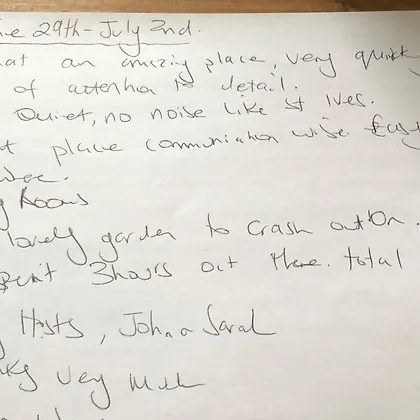 ne 29th - July 2nd.
hat an amazing place, very quirky
of attention to detail.
Quiet, no noise like St Ives.
t place communication wise easy
y Rooms
lovely garden to crash out on.
spent 3 hours out there. total
g Hosts, John a Sarah
nks very much